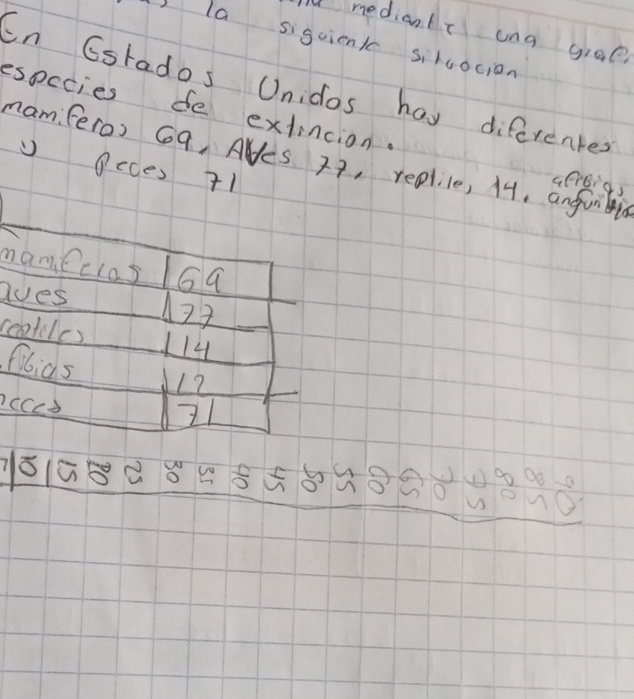 la mediante una grafi
siguiente situocion
En Estados Unidos hay diferentes
especcies de extincion.
mamiferos 69, AVes 77, reptiles 14, afibigs
y Pecces 71
mamiferos 69
aves 77
reptiles 14
fibigs 12
pecces 71
10 15 20 25 30 35 40 45 50 55 60 65 70 75 80 85 90